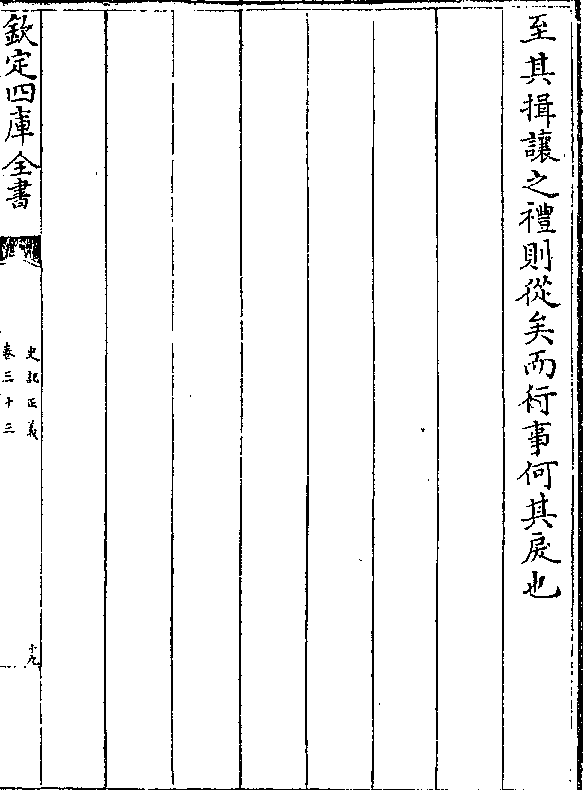 至其揖讓之禮則從矣而行事何其戾也
欽定四庫全書
史記正義
卷三十三
十九